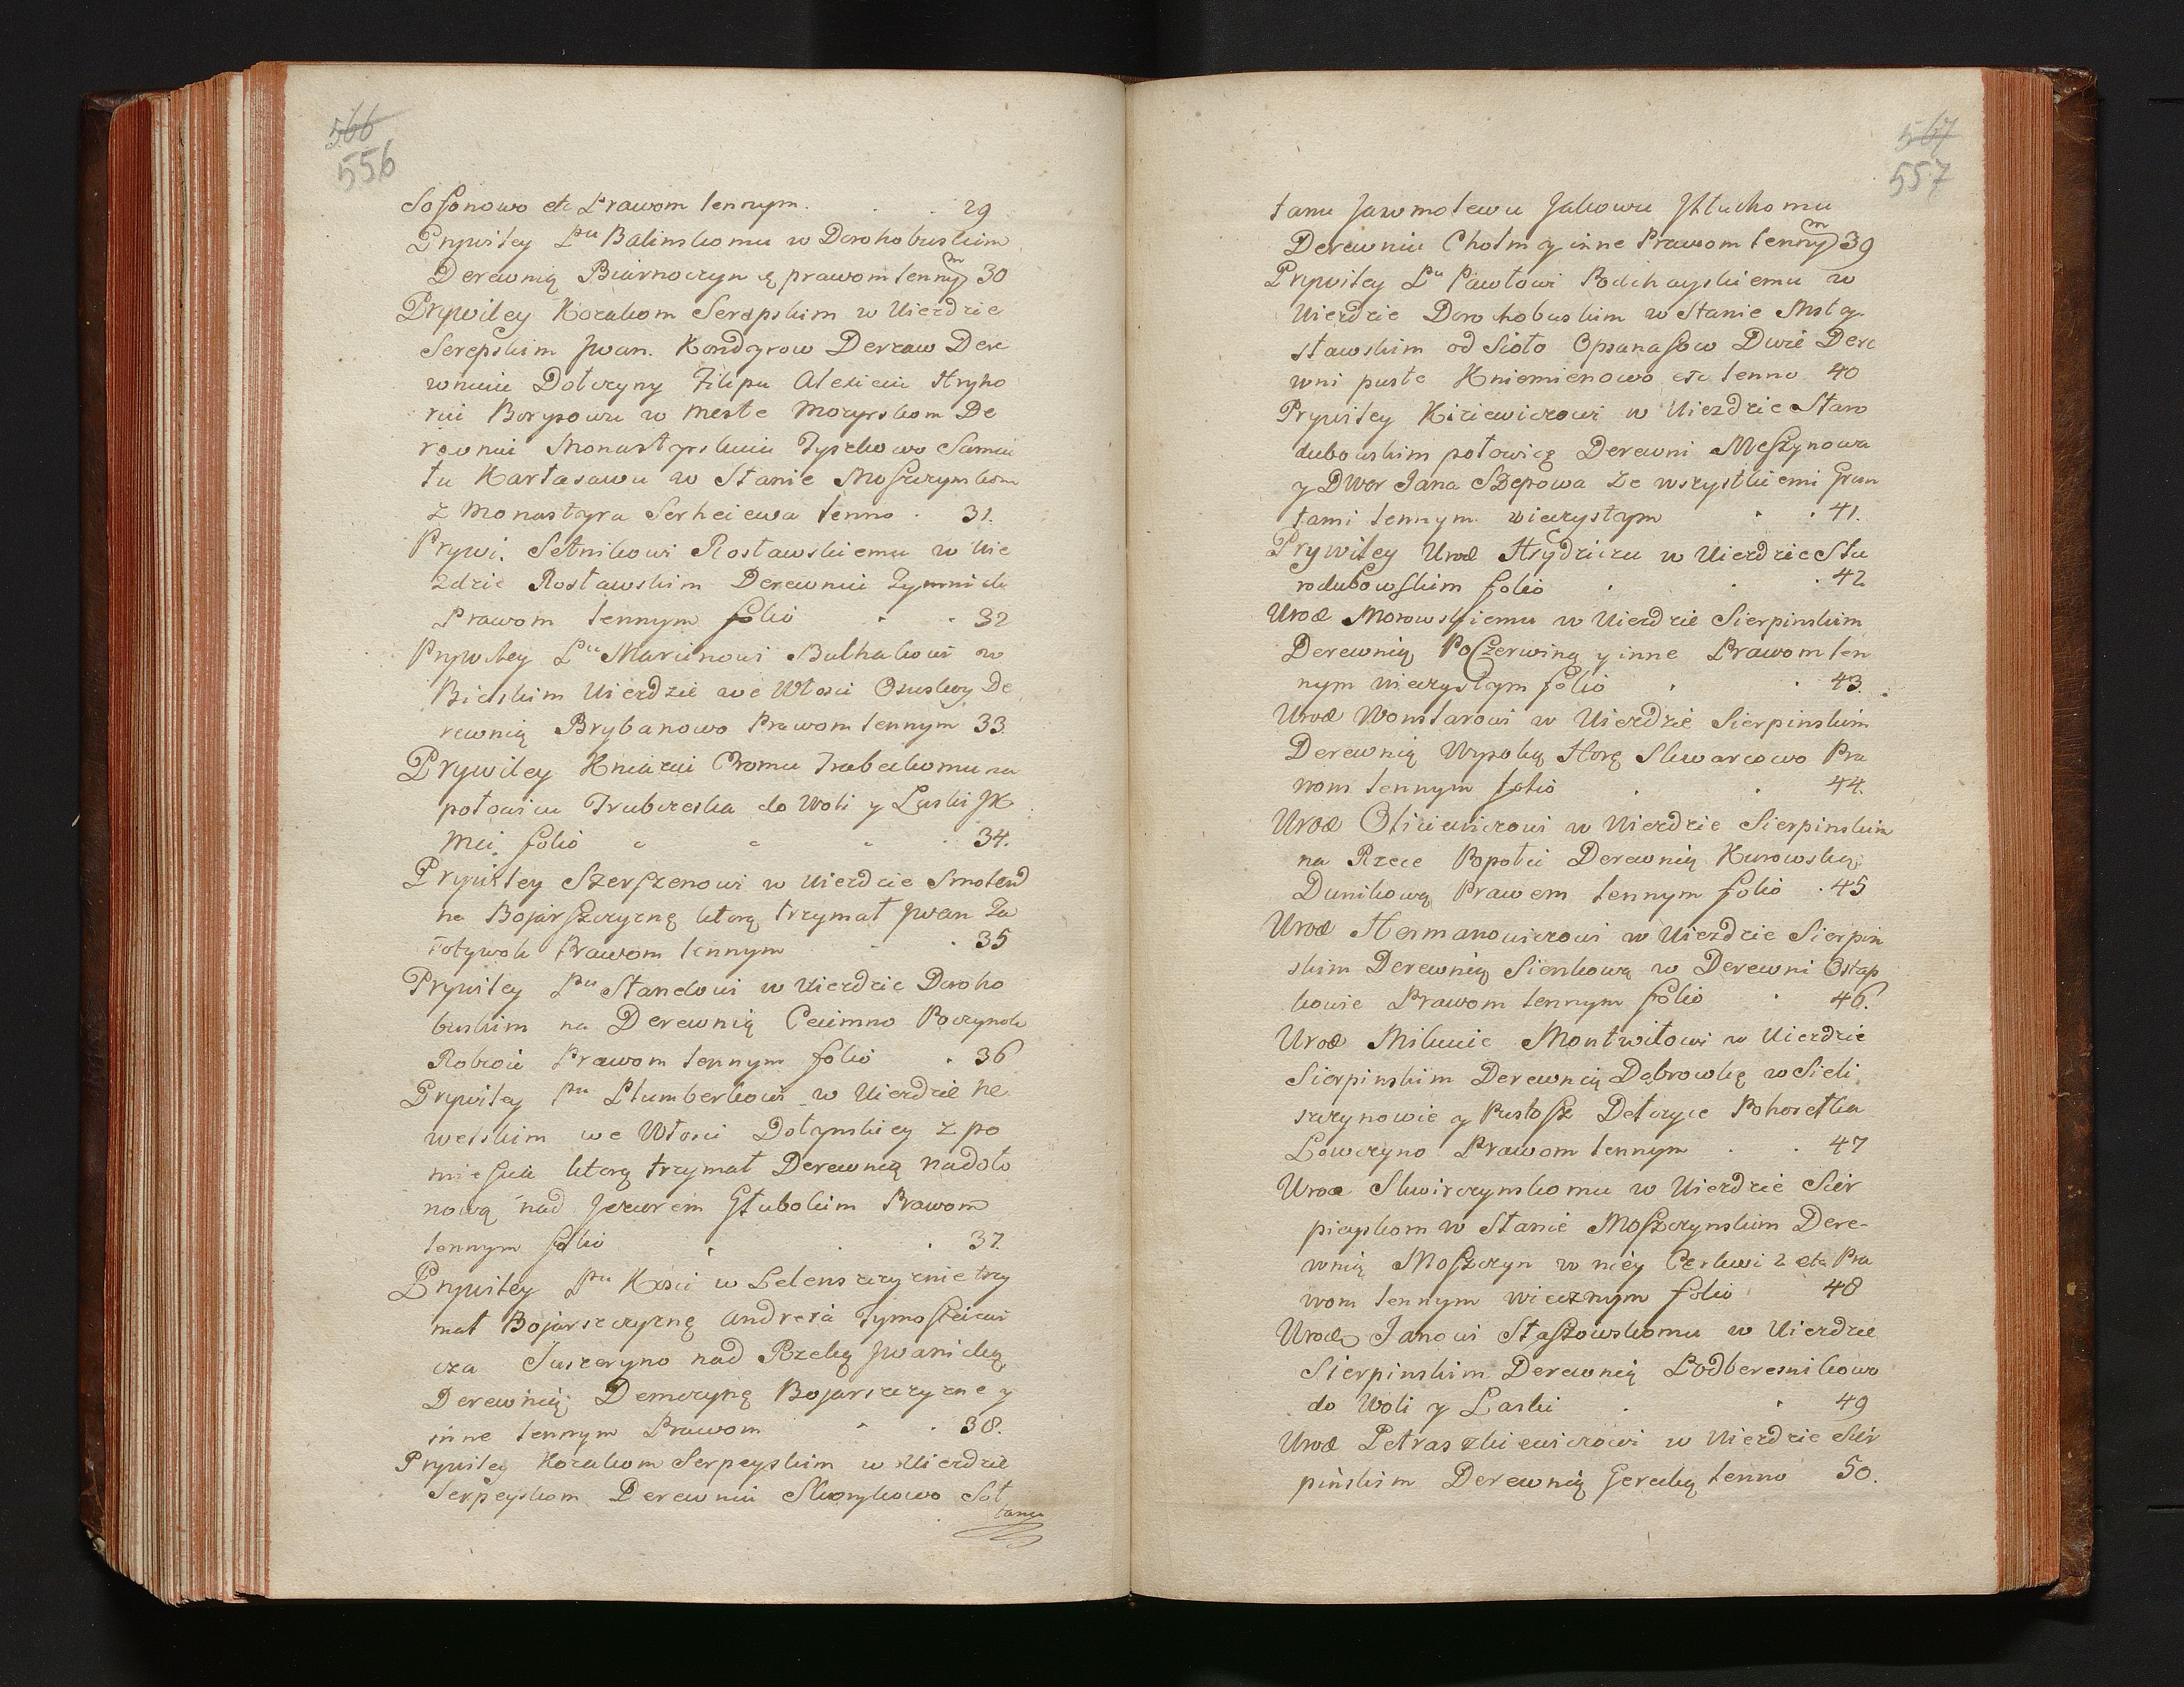 566
556
Sosonowo etc Prawom lennym. 29
Prywiley Pu Balinskomu w Dorohobuskim
Derewnią Biarnoczyn ę prawom lennym 30
Prywiley Kozakom Serepskim w Uiezdzie
Serepskim Jwan. Kondyrow Derzaw Dere
wniui Dotczyny Filipu Alexieiu Hryho
rui Borysowu w meste Mozyrskom De
rewniui Monastyrskuiu Tyszkowo Samui
łu Kartasawu w Stanie Moszczynskom
z Monastyra Serheiewa lenno. 31.
Prywi. Setnikowi Rosławskiemu w Uie
zdzie Rosławskim Derewnui Zymnick
Prawom lennym folio 32
Prywiley Pu Marcinowi Bułhakowi w
Bielskim Uiezdzie we Włosci Osuskoy De
rewnią Brybanowo Prawom lennym 33.
Prywiley Kniaziui Chromu Trubeckomu na
połowicu Trubczeska do Woli y Łaski JK
Mci folio 34.
Prywiley Szerszenowi w Uiezdzie Smolend
na Bojarszczyznę ktorą trzymał Jwan Za
Prawom lennym 35
Prywiley Pu Stanclowi w Uiezdzie Doroho
buskim na Derewnią Ceimno Poczynok
Prawom lennym folio 36
Prywiley Pu Plumberkowi w Uiezdzie Ne
welskim we Włosci Dołynskiey z po
miescia ktorą trzymał Derewnią nadoło
nową nad Jeziorem Głubokim Prawom
lennym folio 37.
Prywiley Pu Kosci w Szelenszczyznie trzy
mał Bojarszczyznę Andreia Tymoszeiewi
cza Juszeryno nad Rzeką Jwanicką
Derewnią Demczynę Bojarszczyzne y
inne lennym Prawom 38.
Prywiley Kozakom Serpeyskim w Uiezdzie
Serpeyskom Derewniu Skorykowo Soł
tanu
567
557
tanu Jawmolewu Jakowu Hłuchomu
Derewniu Chołm y inne Prawom lennym 39
Prywiley Pu Pawłowi Podchayskiemu w
Uiezdzie Dorohobuskim w Stanie Msty
sławskim od Sioło Opanasow Dwie Dere
wni puste Kniemienowo etc lenno 40
Prywiley Kiciewiczowi w Uiezdzie Staro
dubowskim połowicę Derewni Meszynowa
y Dwor Jana Szepowa ze wszystkiemi Grun
tami lennym wieczystym 41.
Prywiley Urod Hrydziczu w Uiezdzie Sta
rodubowskim folio 42
Urod Morowskiemu w Uiezdzie Sierpinskim
Derewnią Poczerwiną y inne Prawom len
nym wieczystym folio 43.
Urod Womlarowi w Uiezdzie Sierpinskim
Derewnią Wysoką Horę Skwarcowo Pra
wom lennym folio 44.
Urod Oliciewiczowi w Uiezdzie Sierpinskim
na Rzece Popolti Derewnią Kurowską
Dunikową Prawem lennym folio 45
Urod Hermanowiczowi w Uiezdzie Sierpin
skim Derewnią Sienkową w Derewni Ostap
kowie Prawom lennym folio 46.
Urod Milunie Montwiłowi w Uiezdzie
Sierpinskim Derewnią Dąbrowkę w Sieli
szczynowie y Pustosz Detczyce Pohosetka
Lowczyno Prawom lennym 47
Urod Skwirczynskomu w Uiezdzie Sier
pieyskom w Stanie Moszczynskim Dere-
wnią Moszczyn w niey Cerkwi 2 etc Pra
wom lennym wiecznym folio 48
Urod Janowi Staszowskomu w Uiezdzie
Sierpinskim Derewnią Podberesnikowo
do Woli y Łaski 49
Urod Petraszkiewiczowi w Uiezdzie Sier
pińskim Derewnią Gerecką lenno 50.